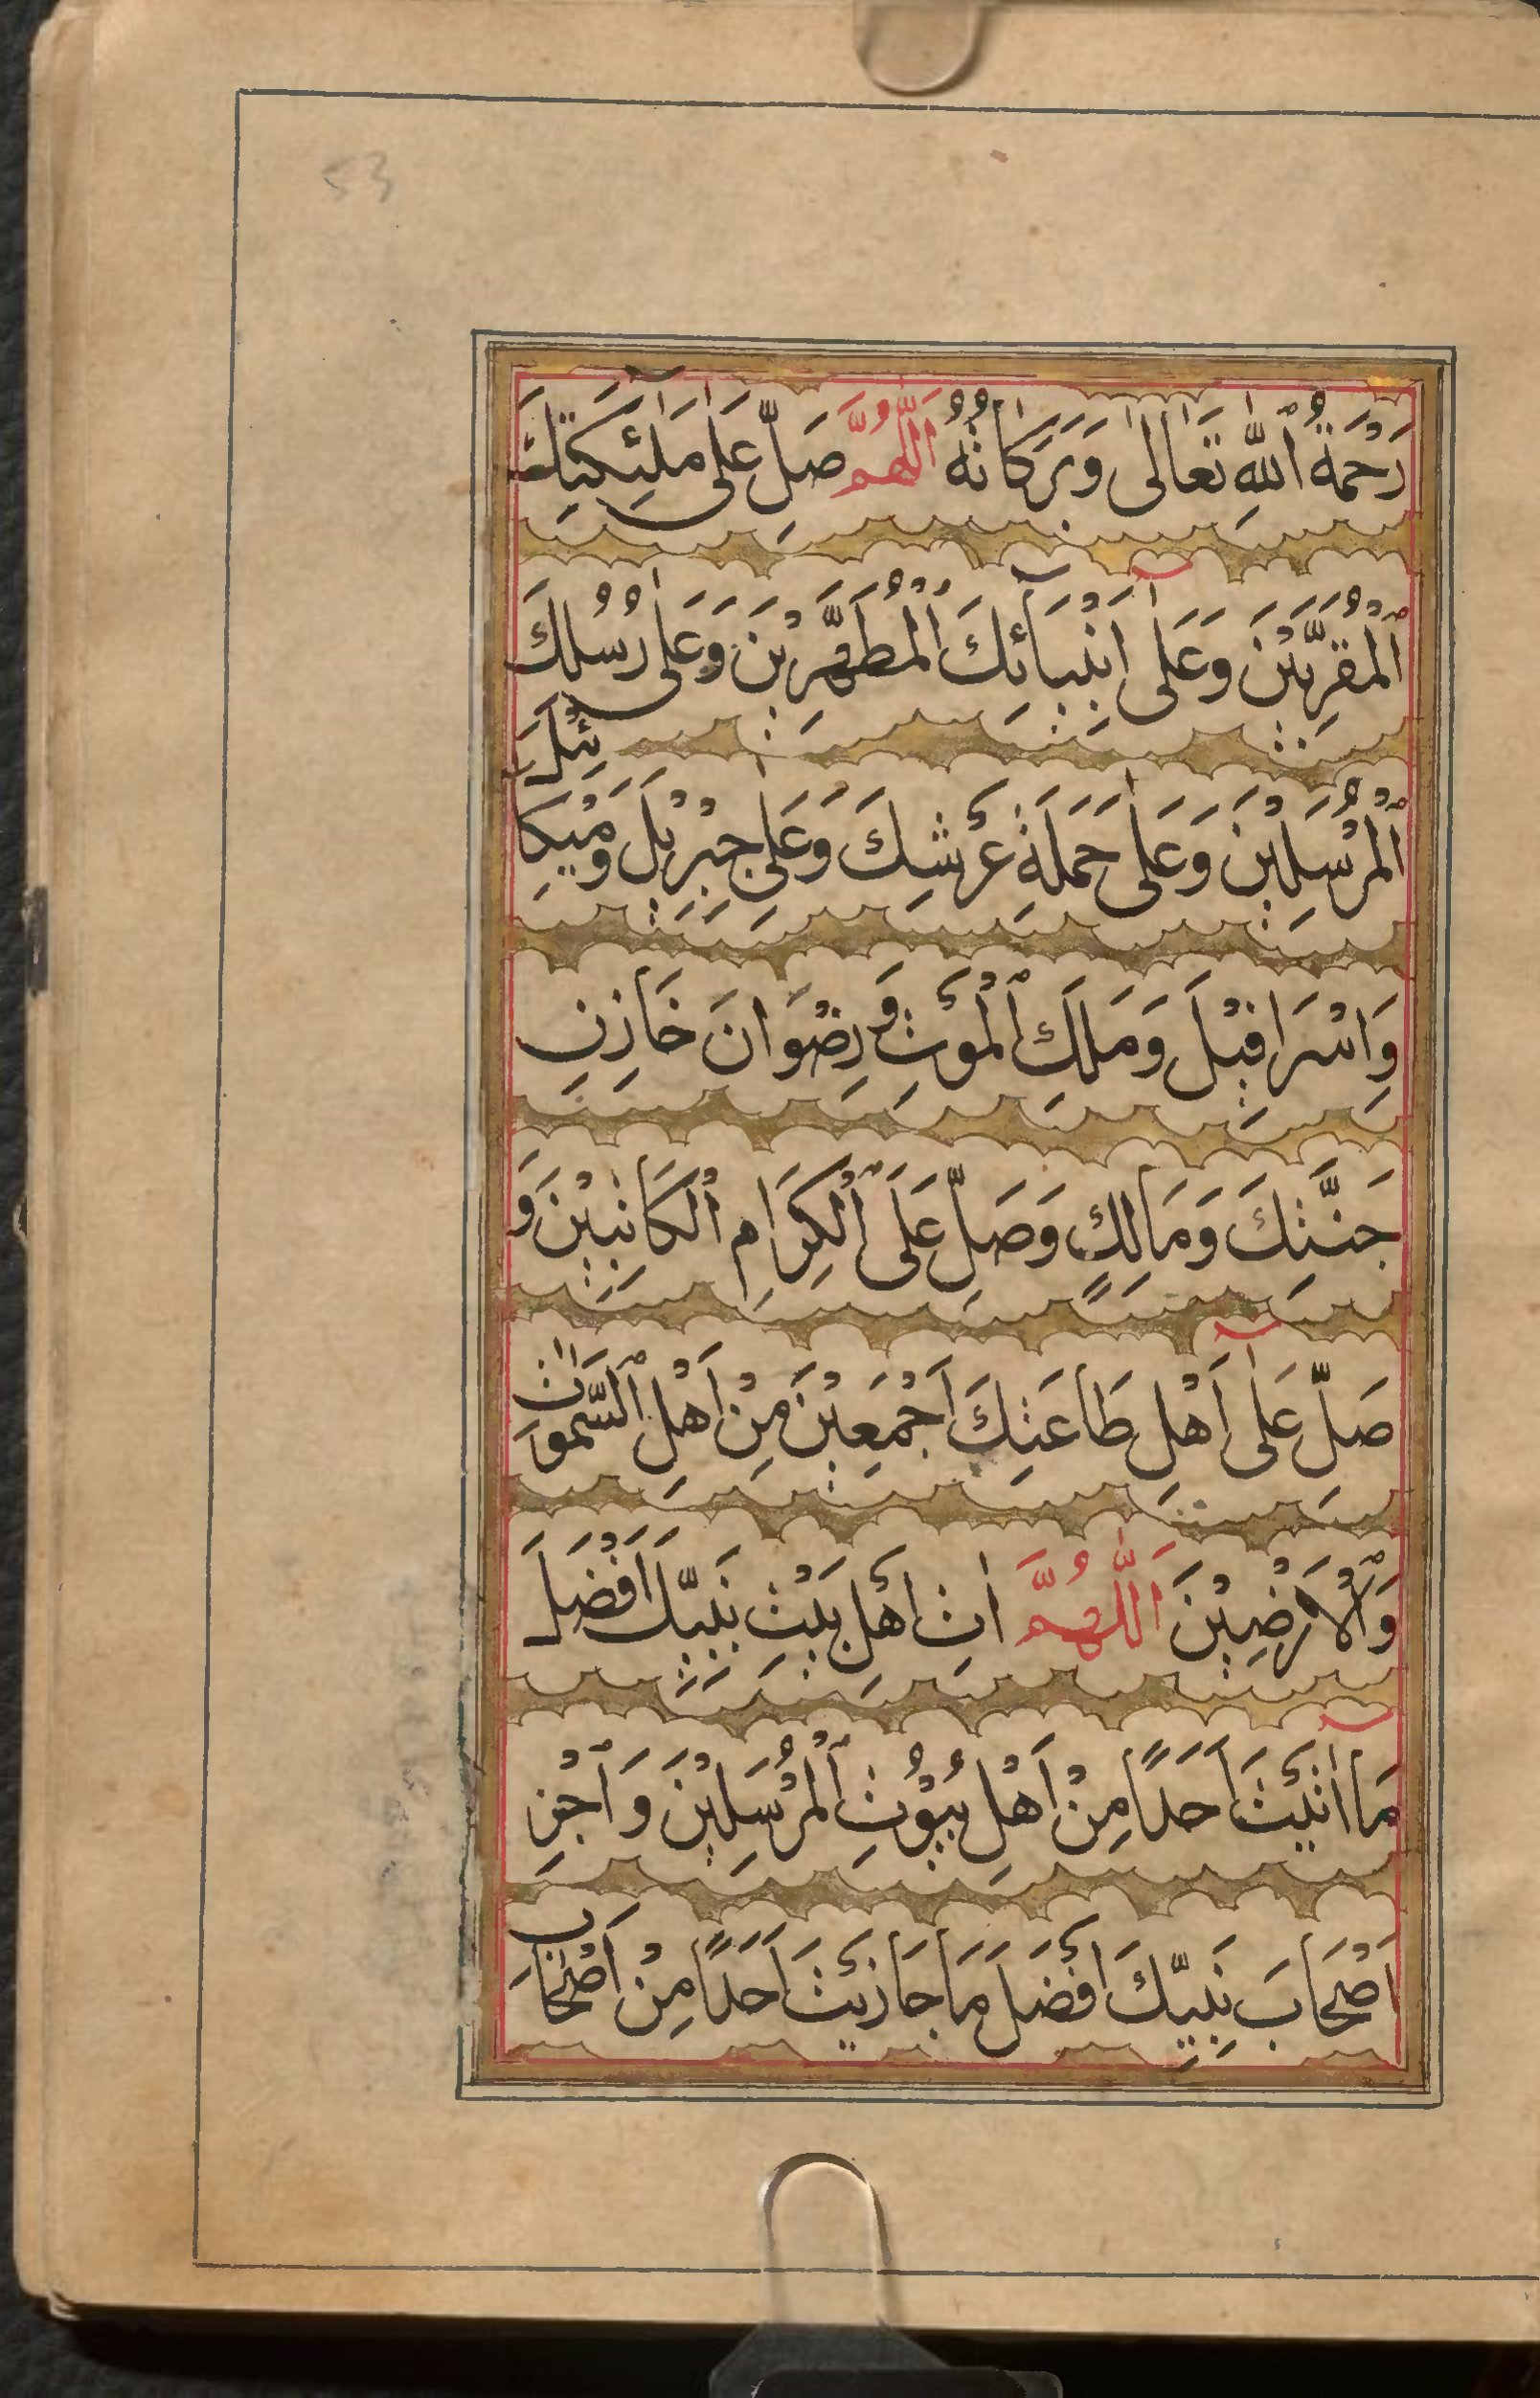 53
رَحْمَةُ ٱللّٰهِ تَعَالٰى وَبَرَكَاتُهُ اَللّٰهُمَّ صَلِّ عَلٰى مَلٰٓئِكَتِكَ
ٱلْمُقَرَّبِيْنَ وَعَلٰٓى اَنْبِيَآئِكَ ٱلْمُطَهَّرِيْنَ وَعَلٰى رُسُلِكَ
ٱلْمُرْسَلِيْنَ وَعَلٰى حَمَلَةِ عَرْشِكَ وَعَلٰى جِبْرِيْلَ وَمِيْكَائِيْلَ
وَاِسْرَافِيْلَ وَمَلَكِ ٱلْمَوْتِ وَرِضْوَانَ خَازِنِ
جَنَّتِكَ وَمَالِكٍ وَصَلِّ عَلَى ٱلْكِرَامِ ٱلْكَاتِبِيْنَ وَ
صَلِّ عَلٰٓى اَهْلِ طَاعَتِكَ اَجْمَعِيْنَ مِنْ اَهْلِ ٱلسَّمٰوَاتِ
وَٱلْاَرَضِيْنَ اَللّٰهُمَّ اٰتِ اَهْلَ بَيْتِ نَبِيِّكَ اَفْضَلَ
مَآ اٰتَيْتَ اَحَدًا مِنْ اَهْلِ بُيُوْتِ ٱلْمُرْسَلِيْنَ وَٱجْزِ
اَصْحَابَ نَبِيِّكَ اَفْضَلَ مَا جَازَيْتَ اَحَدًا مِنْ اَصْحَابِ